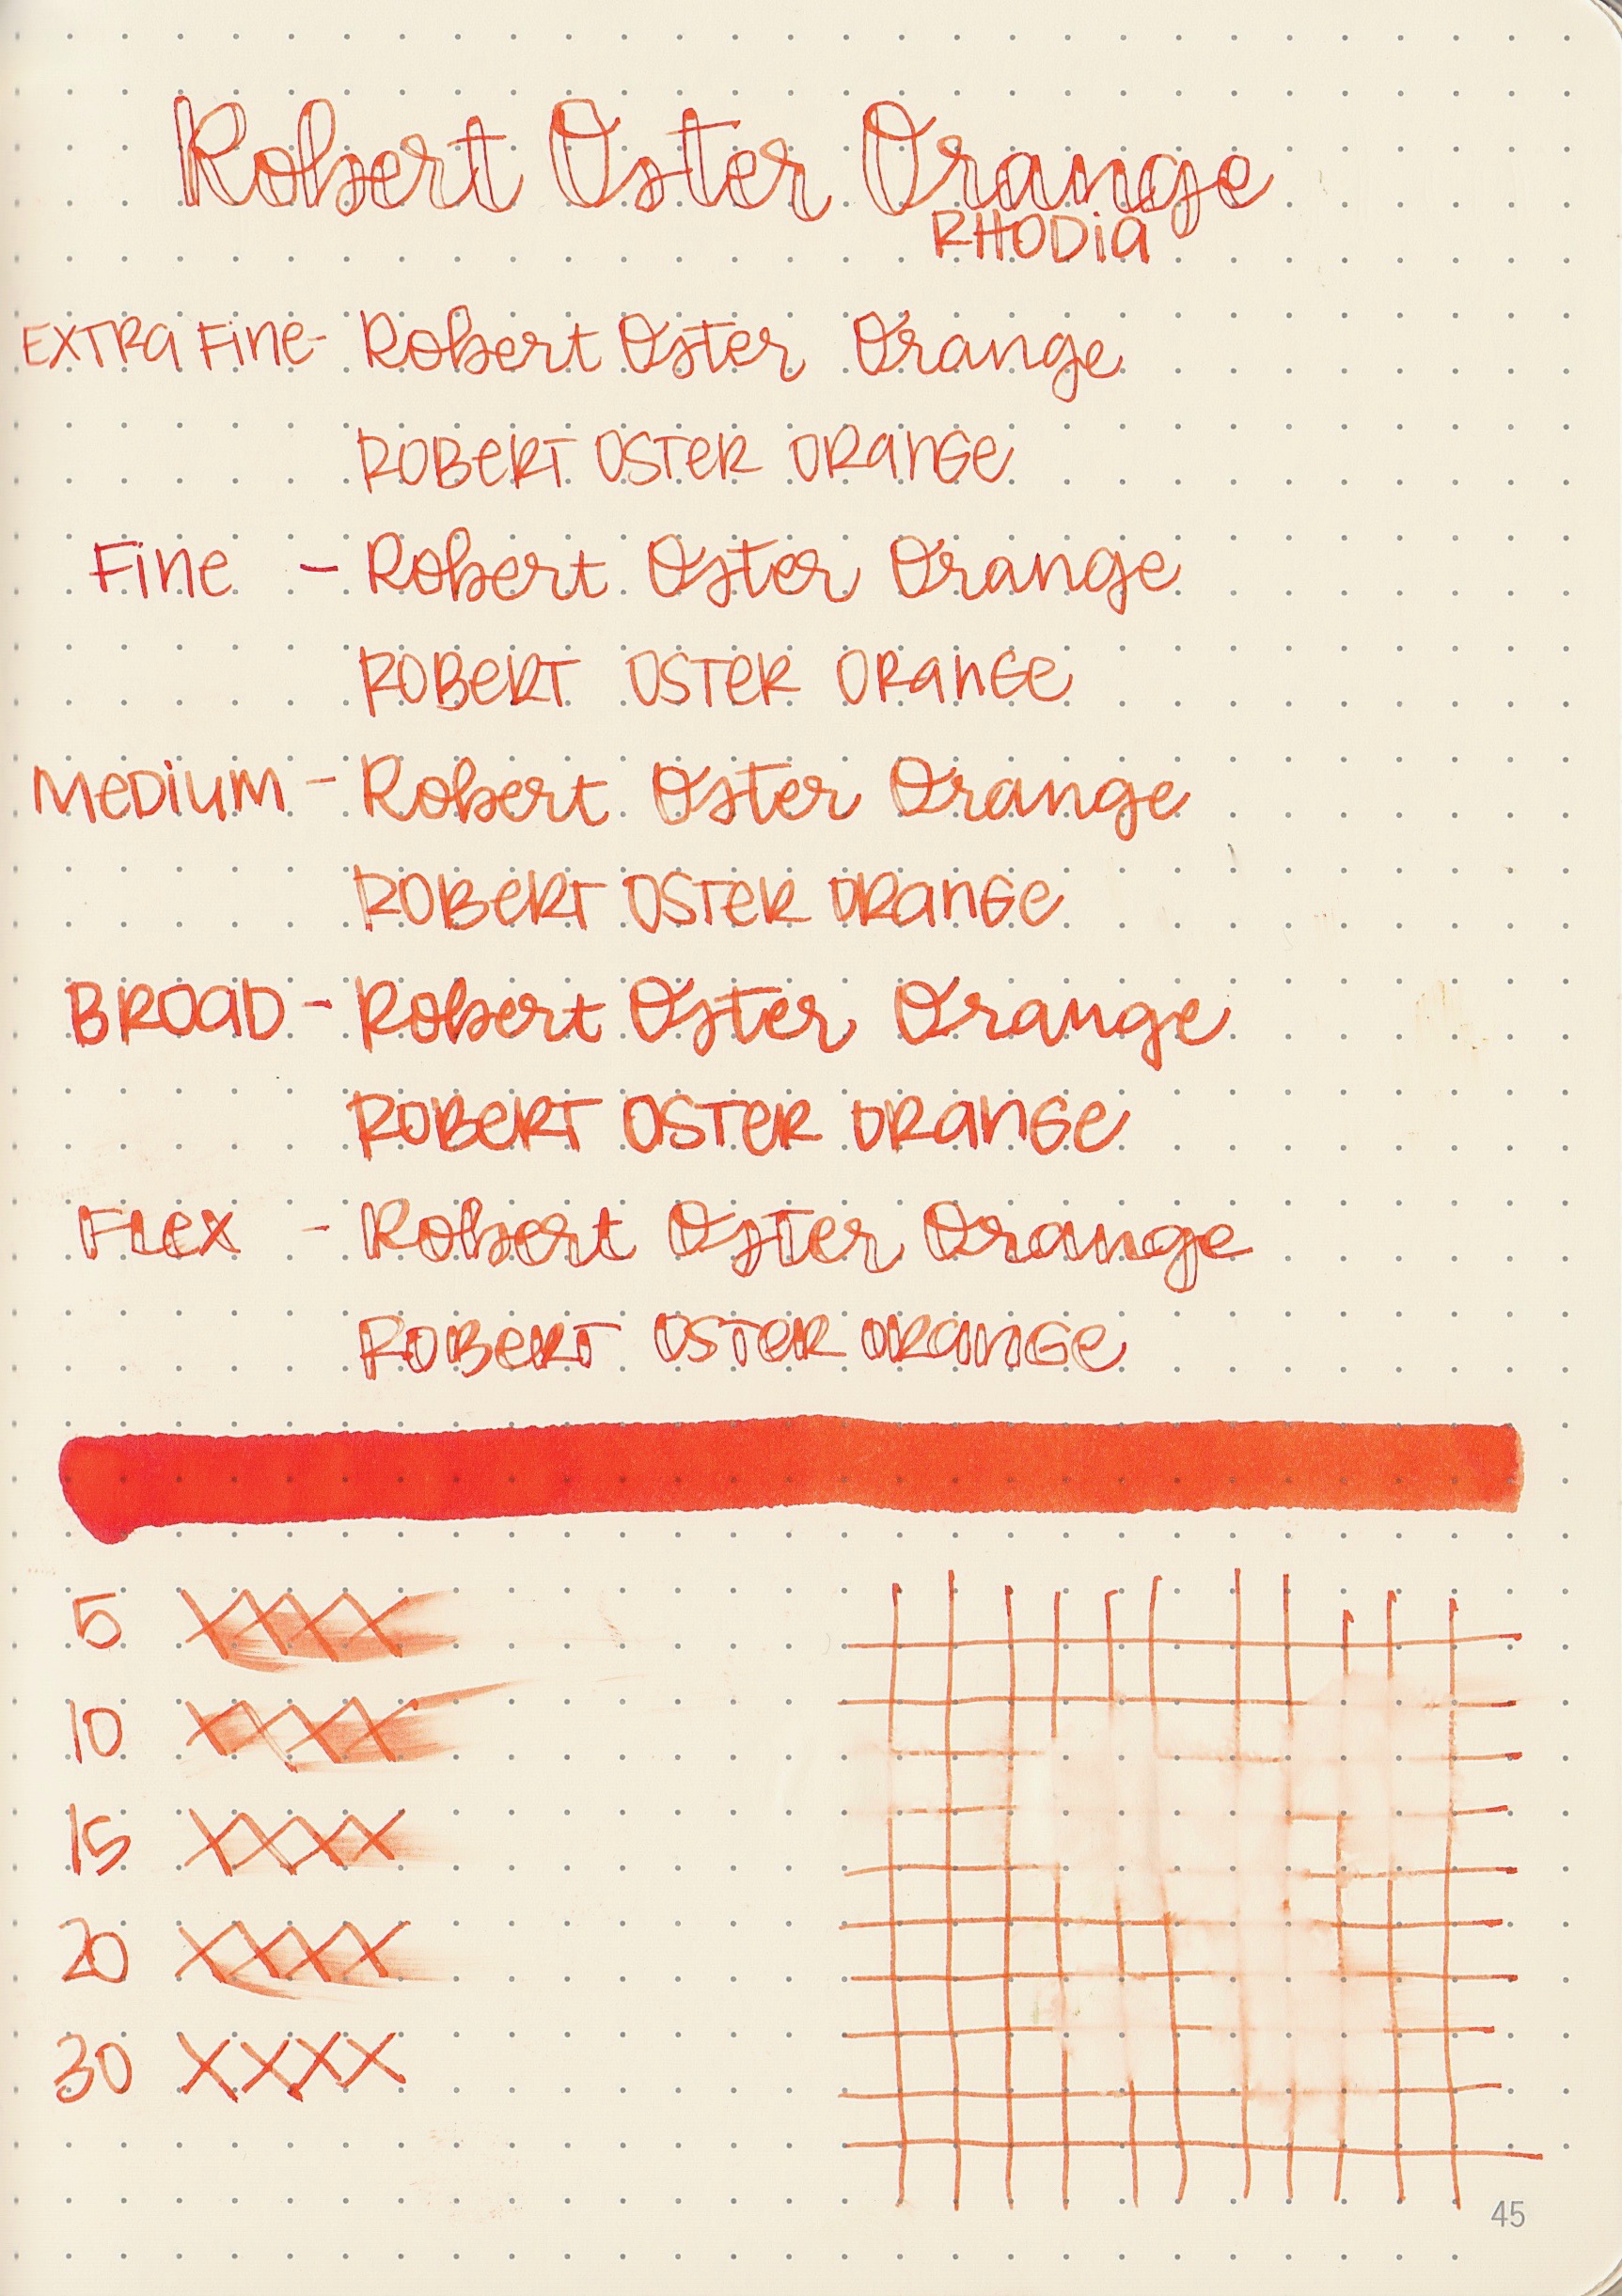 Robert Oster Orange
RHODia
EXTRa Fine- Robert Oster Orange
ROBeRT OSTeR ORanGe
Fine - Robert Oster Orange
ROBeRT OSTeR ORanGe
MeDiuM - Robert Oster Orange
ROBeRT OSTeR ORanGe
BROaD - Robert Oster Orange
ROBeRT OSTeR ORanGe
FLex - Robert Oster Orange
ROBeRT OSTeR ORanGe
5 XXXX
10 XXXX
15 XXXX
20 XXXX
30 XXXX
45